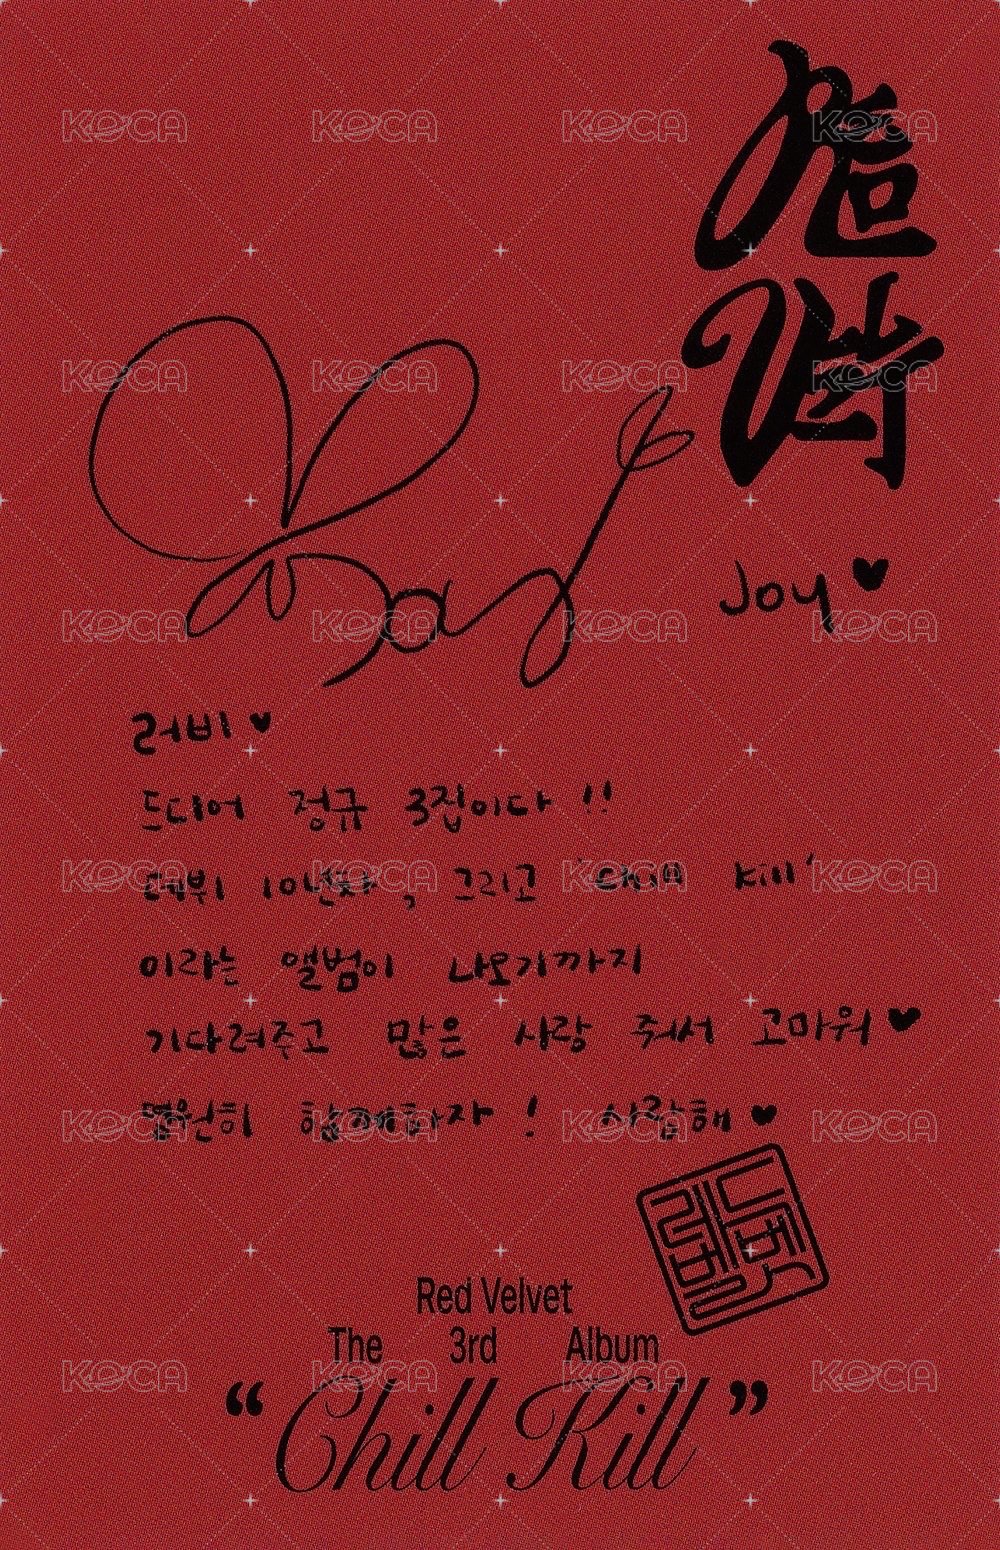 Joy♥
러비♥
드디어 정규 3집이다 !!
데뷔 10년차, 그리고 'Chill Kill'
이라는 앨범이 나오기까지
기다려주고 많은 사랑 줘서 고마워♥
영원히 함께하자 ! 사랑해♥
레드벨벳
Red Velvet
The 3rd Album
“Chill Kill”
KOCA